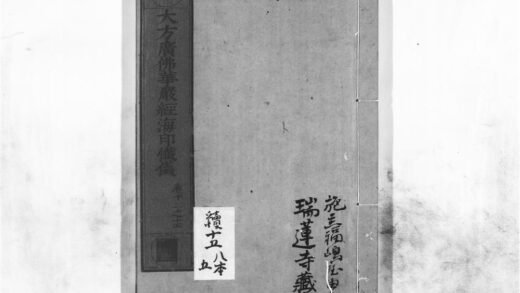 施主福嶋
瑞蓮寺藏
續十五
八本
五
大方廣佛華嚴經海印懺儀